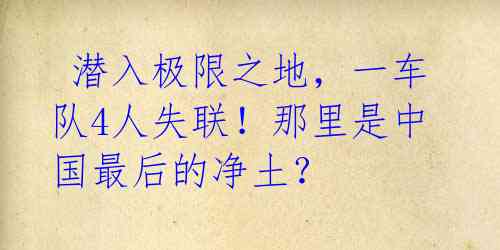 潜入极限之地，一车
队4人失联！那里是中
国最后的净土？